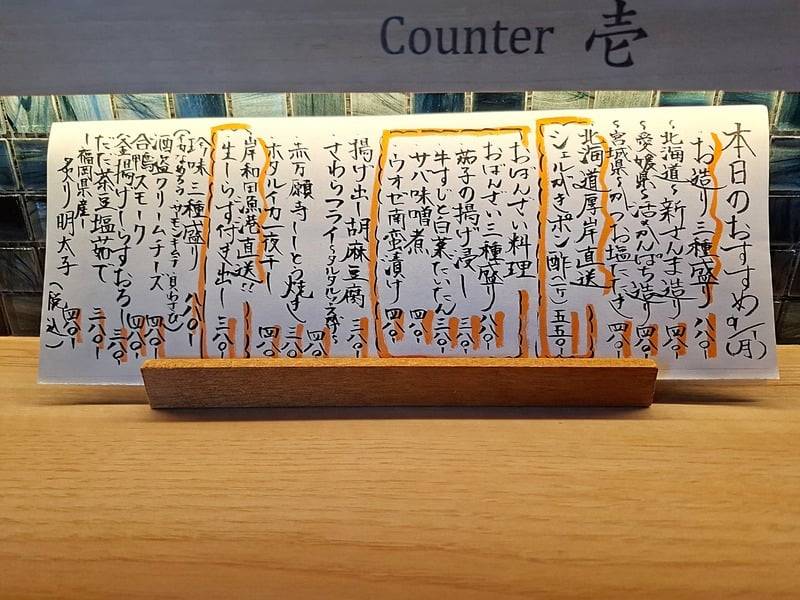 Counter 壱
本日のおすすめ 9/ (月)
お造り三種盛り 八八〇-
北海道〜新さんま造り 四八〇-
愛媛県〜活〆かんぱち造り 四八〇-
宮城県〜かつお塩たたき 四八〇-
北海道厚岸直送
シェルかきポン酢(一ケ) 五五〇-
おばんざい料理
おばんざい三種盛り 八八〇-
茄子の揚げ浸し 三八〇-
牛すじと白菜たいたん 四八〇-
サバ味噌煮 四八〇-
ウオゼ南蛮漬け 四八〇-
揚げ出し胡麻豆腐 三八〇-
さわらフライ〜タルタルソース添え
赤万願寺ししとう焼き 三八〇-
ホタルイカ一夜干し 四八〇-
岸和田漁港直送!!
生しらす付き出し 三八〇-
珍味三種盛り 八八〇-
サーモンキムチ・貝わさび)
酒盗クリームチーズ 四八〇-
合鴨スモーク 四八〇-
釜揚げしらすおろし 三八〇-
だだ茶豆塩茹で 三八〇-
福岡県産
炙り明太子 四八〇-
(税込)